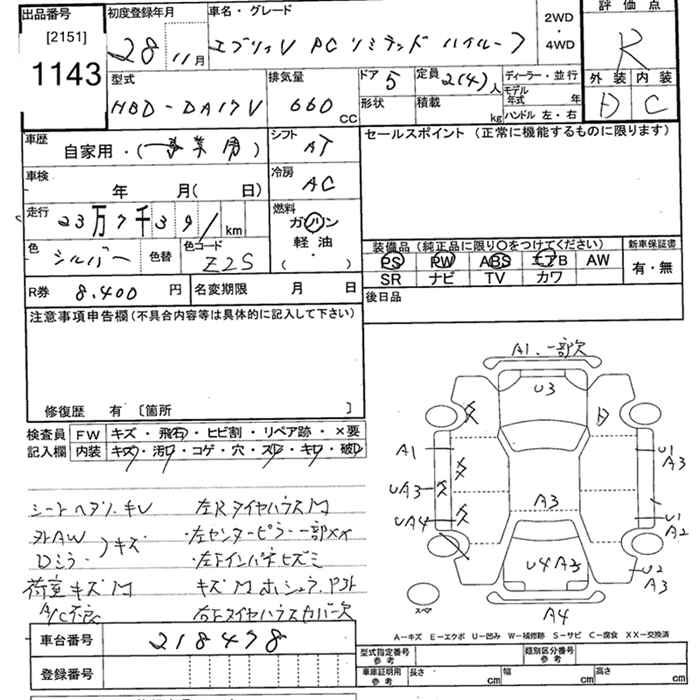 出品番号
[2151]
1143
初度登録年月
28 11月
車名・グレード
エブリィV PC リミテッド ハイルーフ
2WD
・
4WD
評価点
R
外装 内装
D C
型式
HBD-DA17V
排気量
660 CC
ドア 5
形状
定員 2(4)人
積載 kg
ディーラー・並行
モデル年式 年
ハンドル 左・右
車歴
自家用・(事業用)
シフト
AT
車検
年 月( 日)
冷房
AC
走行
23万7千391km
燃料
ガソリン
軽油
( ・ )
色
シルバー
色替
色コード
Z2S
R券 8,400 円
名変期限 月 日
セールスポイント (正常に機能するものに限ります)
装備品 (純正品に限り○をつけてください)
PS PW ABS エアB AW
SR ナビ TV カワ
新車保証書
有・無
後日品
注意事項申告欄(不具合内容等は具体的に記入して下さい)
修復歴 有 〔箇所 〕
検査員記入欄
FW キズ・飛石・ヒビ割・リペア跡・×要
内装 キズ・汚レ・コゲ・穴・スレ・キレ・破レ
左RタイヤハウスM
社外AW
Dミラー 〉キズ
左センターピラー一部XX
左Fインパネヒズミ
荷室キズM
キズM ホシュウアト
A/C不良
右Fタイヤハウスカバー欠
A1、一部欠
U3
A1
UA3
UA4
A3
U4 A3
U1
A3
U1
A2
U2
A3
A4
スペア
A-キズ E-エクボ U-凹み W-補修跡 S-サビ C-腐食 XX-交換済
車台番号 218498
登録番号
型式指定番号 参考
類別区分番号 参考
車庫証明用 参考
長さ cm
幅 cm
高さ cm